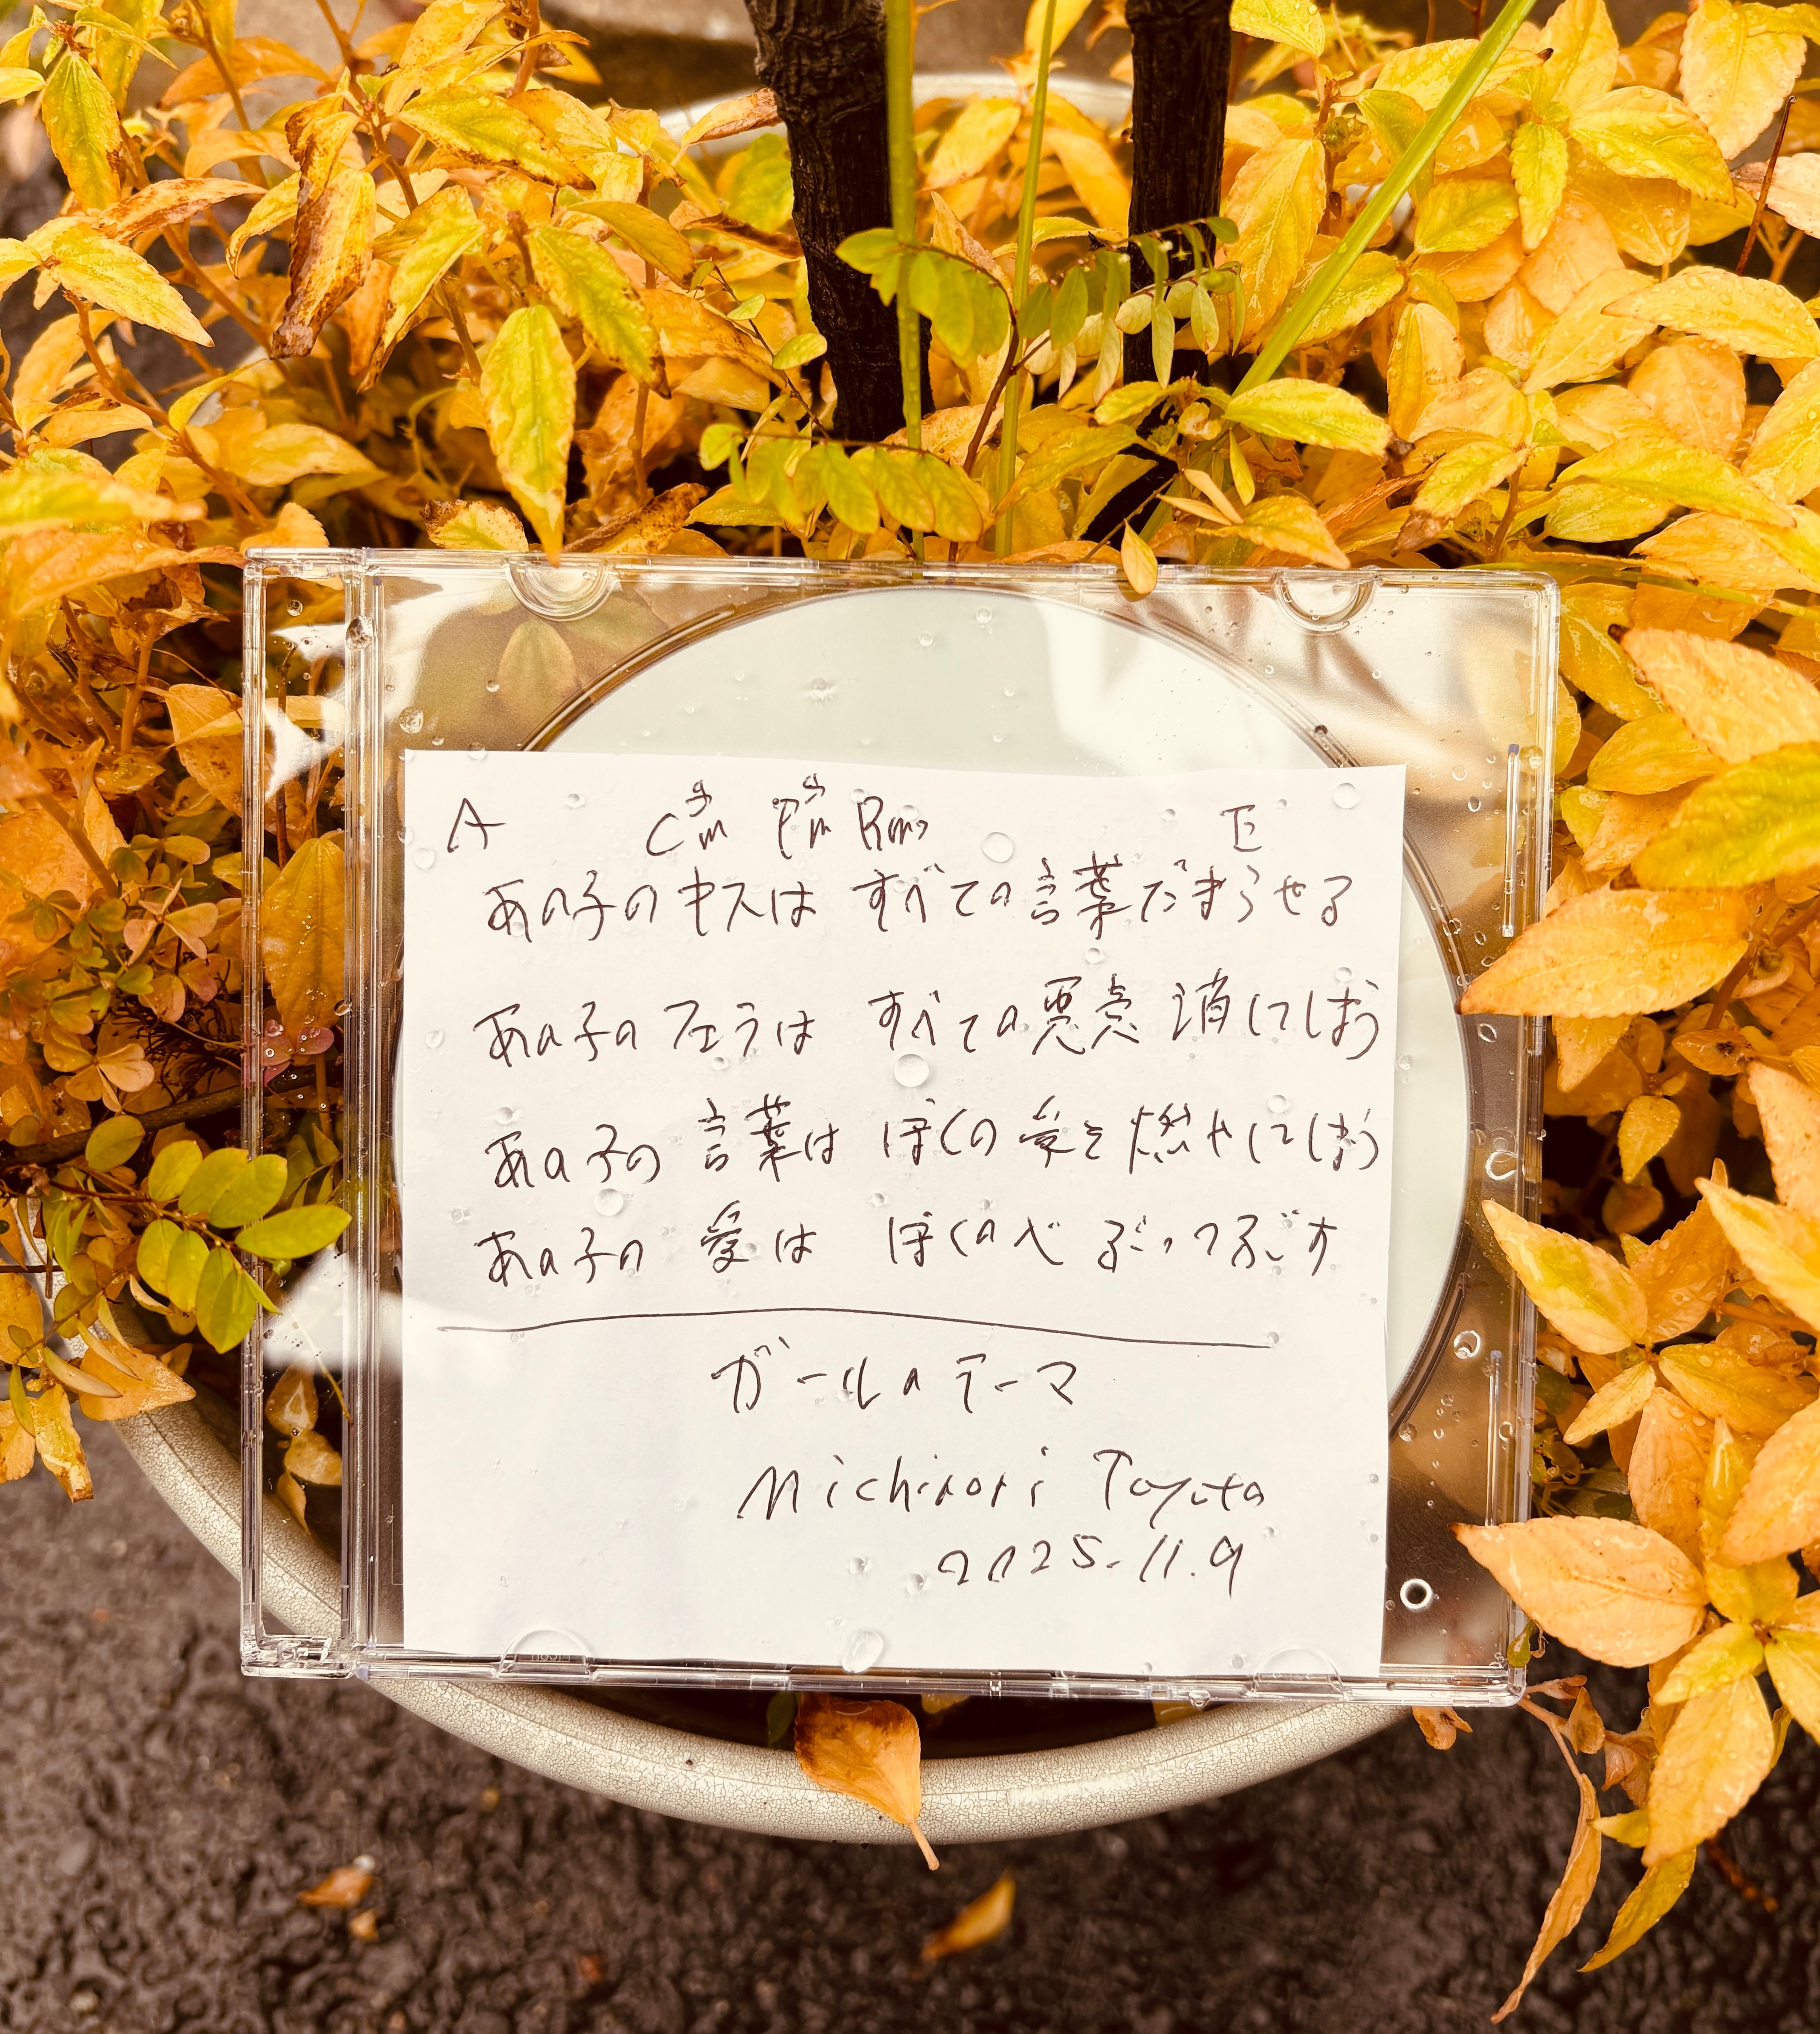 A C#m F#m Bm7 E
あの子のキスは すべての言葉だまらせる
あの子のフェラは すべての悪意消してしまう
あの子の言葉は ぼくの愛を燃やしてしまう
あの子の愛は ぼくの心ぶっつぶす
ガールのテーマ
Michinori Toyota
2025.11.9